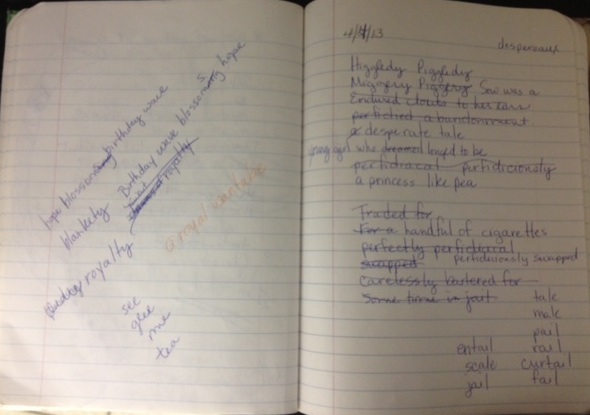 hope blossoming birthday wave
blankety Birthday wave blossoms hope
royalty
royalty
a royal
see
glee
me
tea
4/4/13
despereaux
Higgledy Piggledy
Miggery Piggery Sow was a
Endured clouts to her ears
perfidied abandonment
a desperate tale
young girl who dreamed longed to be
perfidiacal perfidiciously
a princess like pea
Traded for
For a handful of cigarettes
perfectly perfidiacal
swapped perfidiciously swapped
Carelessly bartered for
Some time in jail
tale
male
pail
entail rail
scale curtail
jail fail